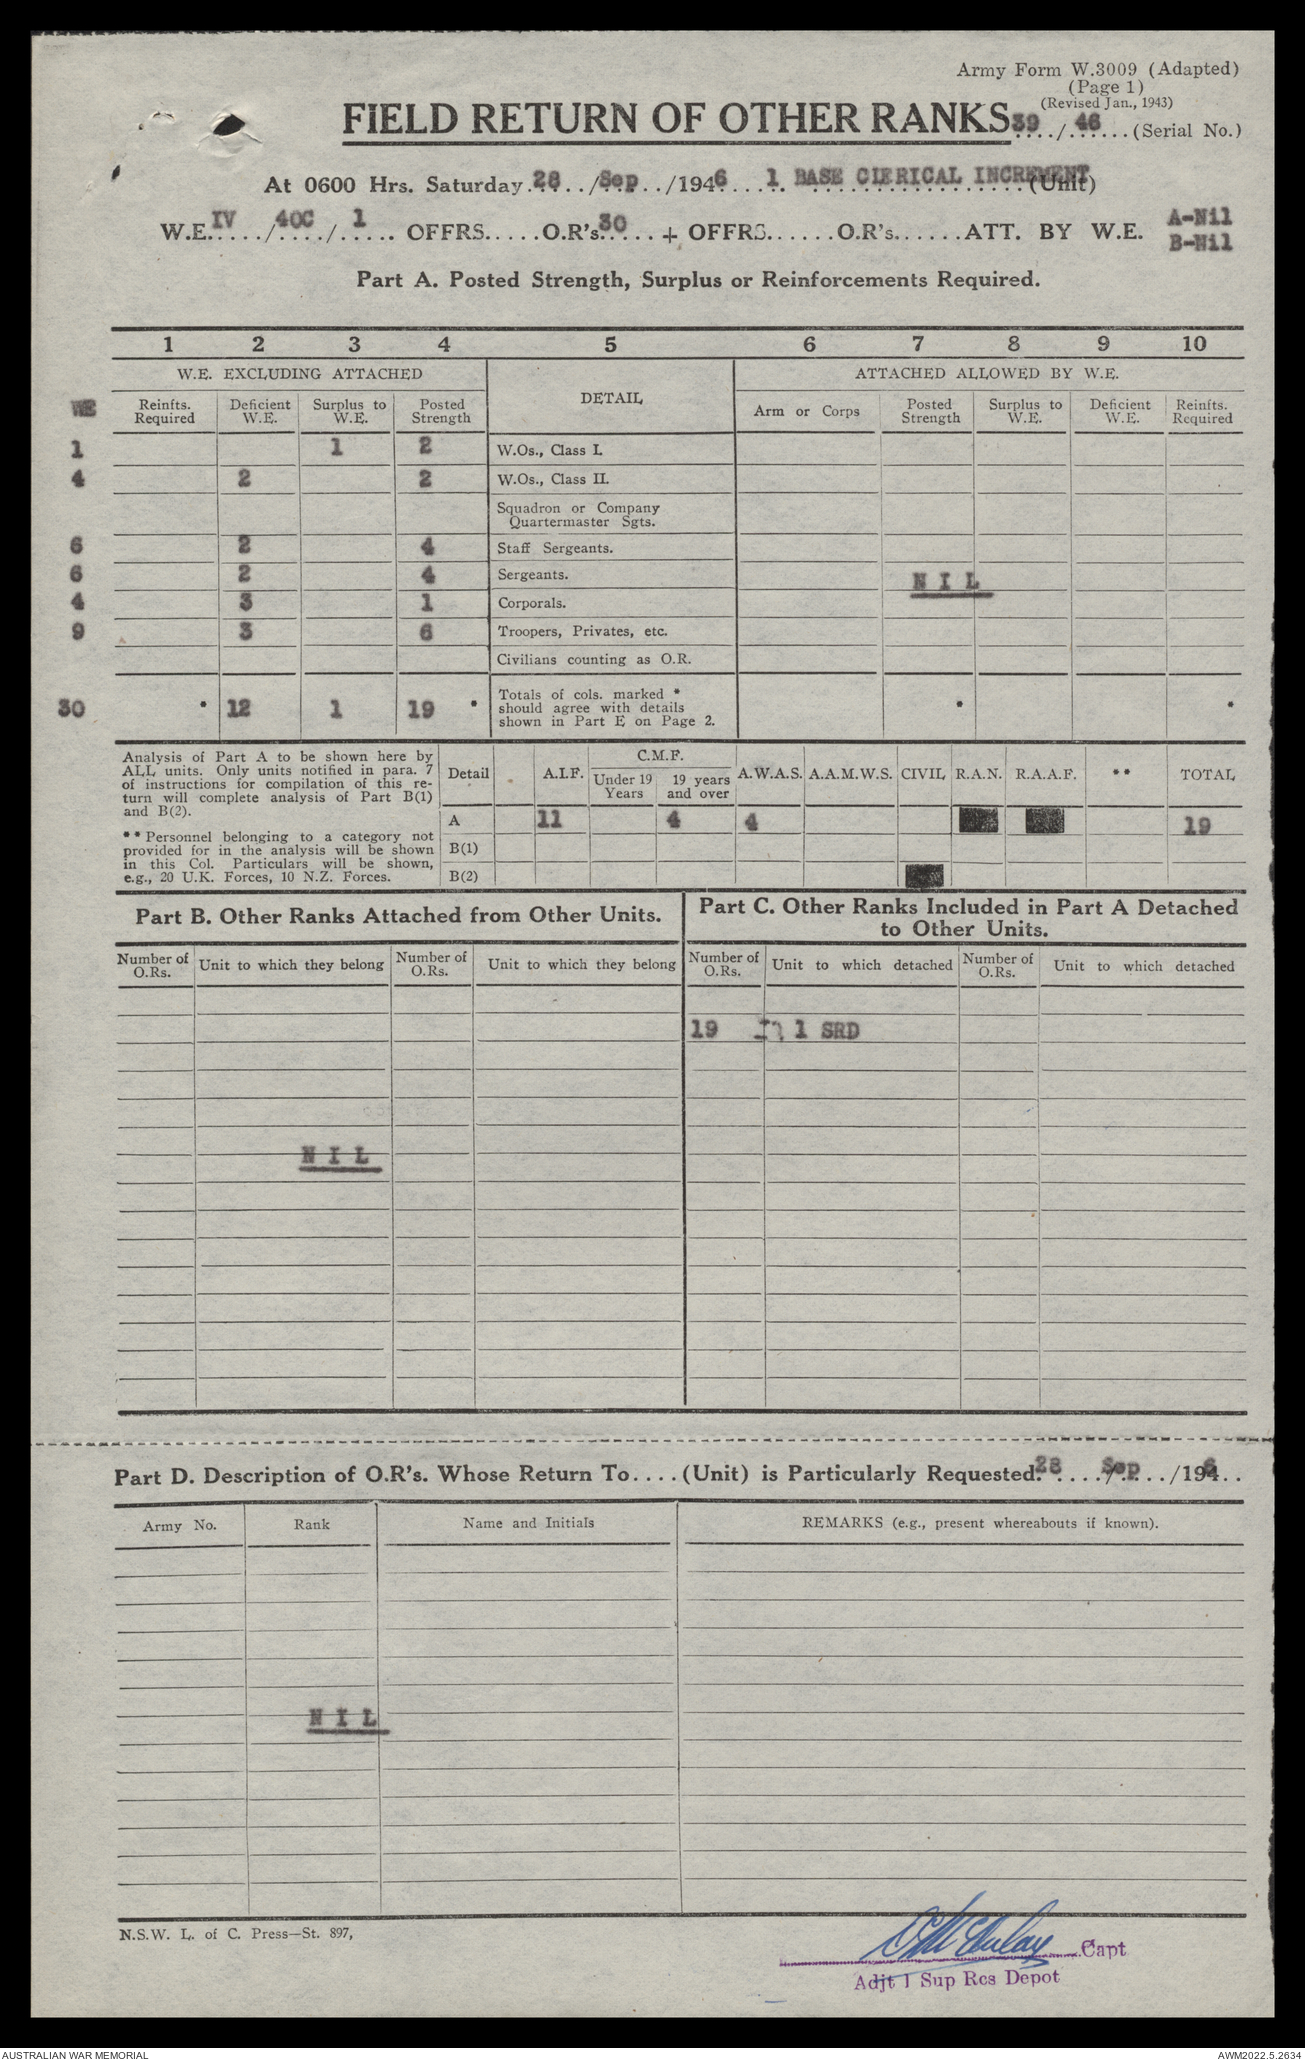 Army Form W.3009 (Adapted)
(Page 1)
(Revised Jan., 1943)
FIELD RETURN OF OTHER RANKS 39/46 (Serial No.)
At 0600 Hrs. Saturday 28 / Sep /1946 1 BASE CLERICAL INCREMENT (Unit)
W.E. IV / 40C / 1 OFFRS.....O.R's. 30 + OFFRS......O.R's......ATT. BY W.E. A-Nil
B-Nil
Part A. Posted Strength, Surplus or Reinforcements Required.
1 2 3 4 5 6 7 8 9 10
W.E. EXCLUDING ATTACHED DETAIL ATTACHED ALLOWED BY W.E.
WE Reinfts. Required Deficient W.E. Surplus to W.E. Posted Strength Arm or Corps Posted Strength Surplus to W.E. Deficient W.E. Reinfts. Required
1 1 2 W.Os., Class I.
4 2 2 W.Os., Class II.
Squadron or Company
Quartermaster Sgts.
6 2 4 Staff Sergeants.
6 2 4 Sergeants. NIL
4 3 1 Corporals.
9 3 6 Troopers, Privates, etc.
Civilians counting as O.R.
30 * 12 1 19 * Totals of cols. marked * should agree with details shown in Part E on Page 2. * *
Analysis of Part A to be shown here by
ALL units. Only units notified in para. 7
of instructions for compilation of this re-
turn will complete analysis of Part B(1)
and B(2).
** Personnel belonging to a category not
provided for in the analysis will be shown
in this Col. Particulars will be shown,
e.g., 20 U.K. Forces, 10 N.Z. Forces.
Detail A.I.F. C.M.F. Under 19 Years 19 years and over A.W.A.S. A.A.M.W.S. CIVIL R.A.N. R.A.A.F. ** TOTAL
A 11 4 4 19
B(1)
B(2)
Part B. Other Ranks Attached from Other Units.
Part C. Other Ranks Included in Part A Detached
to Other Units.
Number of O.Rs. Unit to which they belong Number of O.Rs. Unit to which they belong Number of O.Rs. Unit to which detached Number of O.Rs. Unit to which detached
19 1 SRD
NIL
Part D. Description of O.R's. Whose Return To....(Unit) is Particularly Requested. 28 / Sep /1946..
Army No. Rank Name and Initials REMARKS (e.g., present whereabouts if known).
NIL
N.S.W. L. of C. Press—St. 897,
Capt
Adjt 1 Sup Res Depot
AUSTRALIAN WAR MEMORIAL AWM2022.5.2634